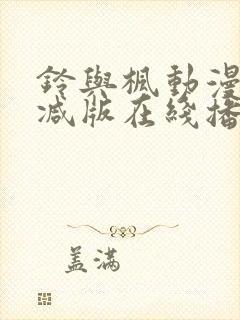 鈴與楓動漫
减版在綫播
盖满